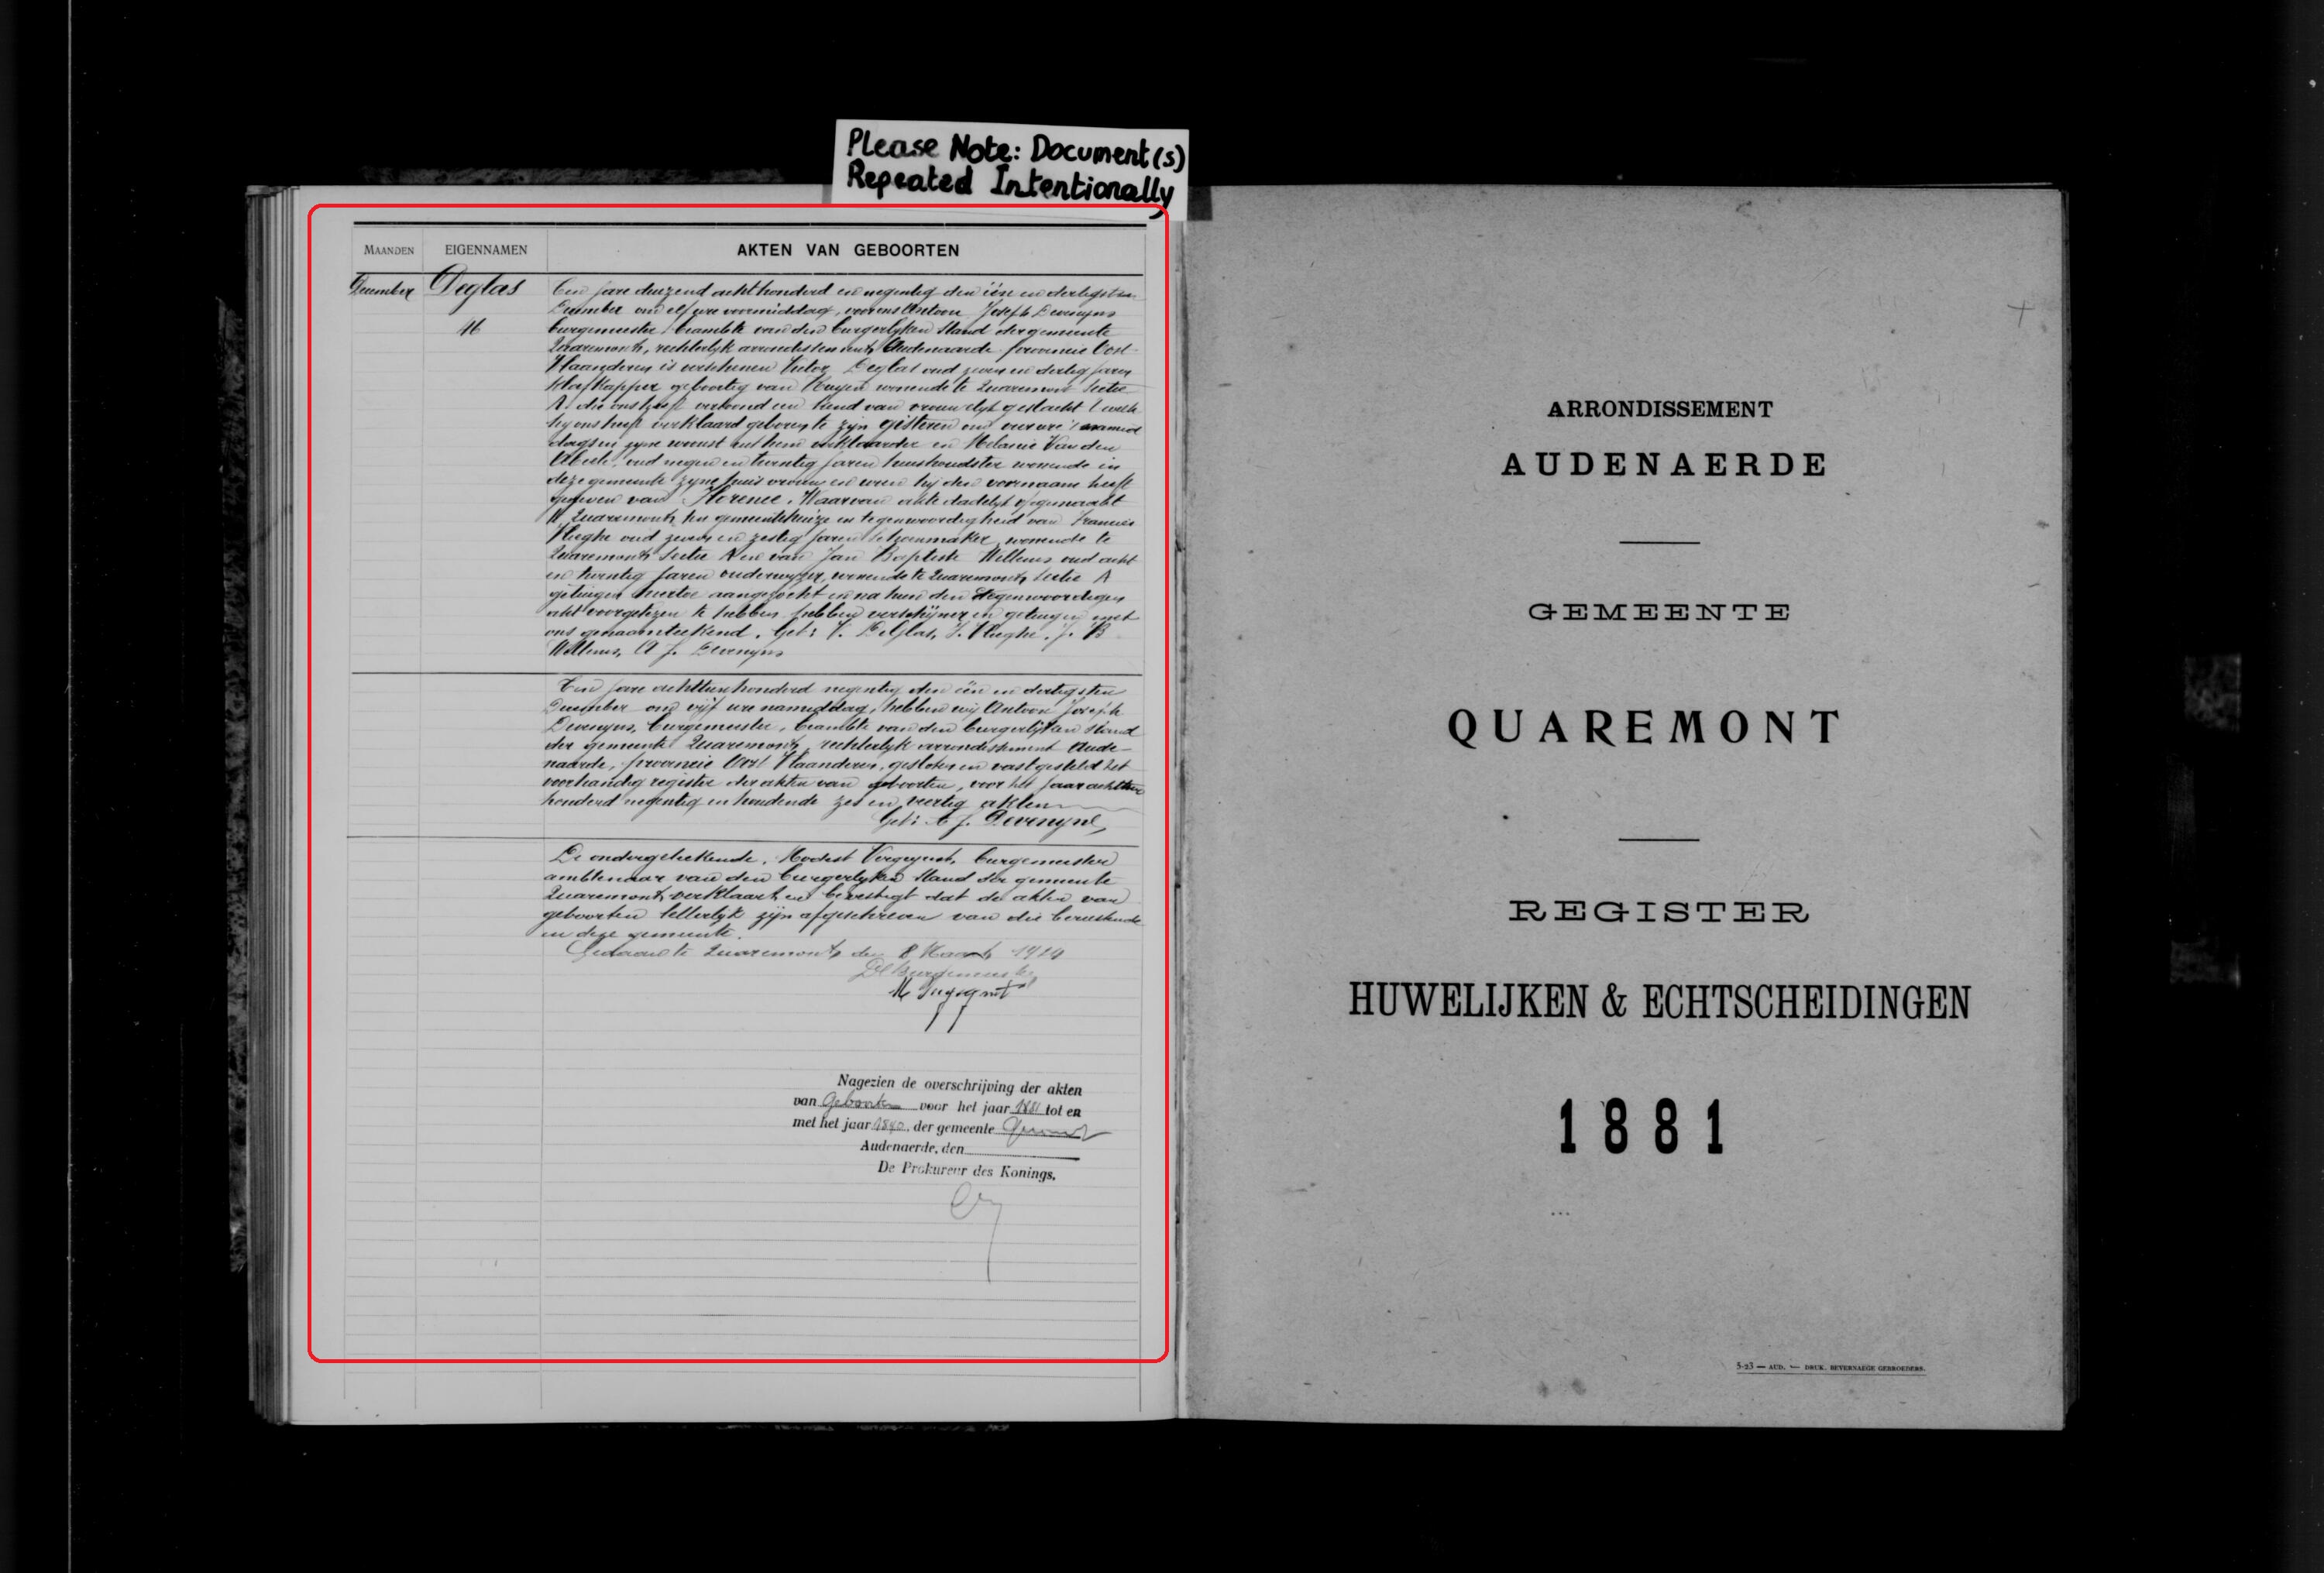 Please Note: Document(s)
Repeated Intentionally
MAANDEN EIGENNAMEN AKTEN VAN GEBOORTEN
December Deglas
46
Ten jare duizend achthonderd en negentig den één en dertigsten
December om elf ure voormiddag, voor ons Antoon Joseph Devenyns
burgemeester beambte van den burgerlyken stand der gemeente
Quaremont, rechterlyk arrondissement Audenaarde provincie Oost-
Vlaanderen is verschenen Victor Deglas oud zeven en dertig jaren
geboortig van Ruyen wonende te Quaremont sectie
A die ons heeft vertoond een kind van vrouwelyk geslacht
hy ons heeft verklaard geboren te zyn gisteren om vier ure namid
dags in zyne woonst uit hem verklaarder en Melanie Van den
Abeele, oud negen en twintig jaren huishoudster wonende in
deze gemeente zyne huisvrouw en wien hy den voornaam heeft
gegeven van Florence. Waarvan akte dadelyk opgemaakt
te Quaremont ten gemeentehuize in tegenwoordigheid van Francies
Vlieghe oud zeven en zestig jaren wonende te
Quaremont sectie A en van Jan Baptiste Willems oud acht
en twintig jaren onderwyzer, wonende te Quaremont, sectie A
getuigen hiertoe aangezocht en na hun den tegenwoordigen
akt voorgelezen te hebben hebben verschijner en getuigen met
ons genaamteekend. Get: V. DeGlas, F. Vlieghe. J. B
Willems, A J. Devenyns
Ten jare achttienhonderd negentig den één en dertigsten
December om vijf ure namiddag, hebben wij Antoon Joseph
Devenyns, burgemeester, beambte van den burgerlijken stand
der gemeente Quaremont, rechterlyk arrondissement Aude-
naarde, provincie Oost Vlaanderen, gesloten en vastgesteld het
voorhandig register der akten van geboorten, voor het jaar achttien
honderd negentig inhoudende zes en veertig akten
Get: A J. Devenyns,
De ondergeteekende, Modest burgemeester
ambtenaar van den burgerlyken stand der gemeente
Quaremont, verklaart en bevestigt dat de akten van
geboorten letterlyk zijn afgeschreven van die berustende
in deze gemeente.
Gedaan te Quaremont, den 8 Maart 1924
De Burgemeester
Nagezien de overschrijving der akten
van Geboorten voor het jaar 1881 tot en
met het jaar 1890, der gemeente
Audenaerde, den
De Prokureur des Konings,
ARRONDISSEMENT
AUDENAERDE
GEMEENTE
QUAREMONT
REGISTER
HUWELIJKEN & ECHTSCHEIDINGEN
1881
5-23 — AUD. — DRUK. BEVERNAEGE GEBROEDERS.